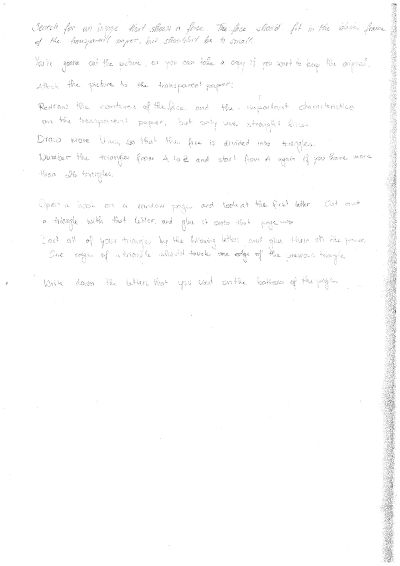 Search for an image that shows a face. The face should fit in the above frame
of the transparent paper, but shouldn't be to small.
You're gonna cut the picture, so you can take a copy if you want to keep the original.
Attach the picture to the transparent paper:
Redraw the contures of the face and the important characteristics
on the transparent paper, but only use straight lines.
Draw more lines, so that the face is divided into triangles.
Number the triangles from A to Z and start from A again if you have more
than 26 triangles.
Open a book on a random page and look at the first letter. Cut out
a triangle with that letter and glue it onto that page
all of your triangles by the following letters and glue them on the paper.
One edge of a triangle should touch one edge of the previous triangle.
Write down the letters that you used on the bottom of the page.